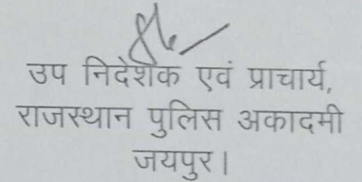 उप निदेशक एवं प्राचार्य,
राजस्थान पुलिस अकादमी
जयपुर।